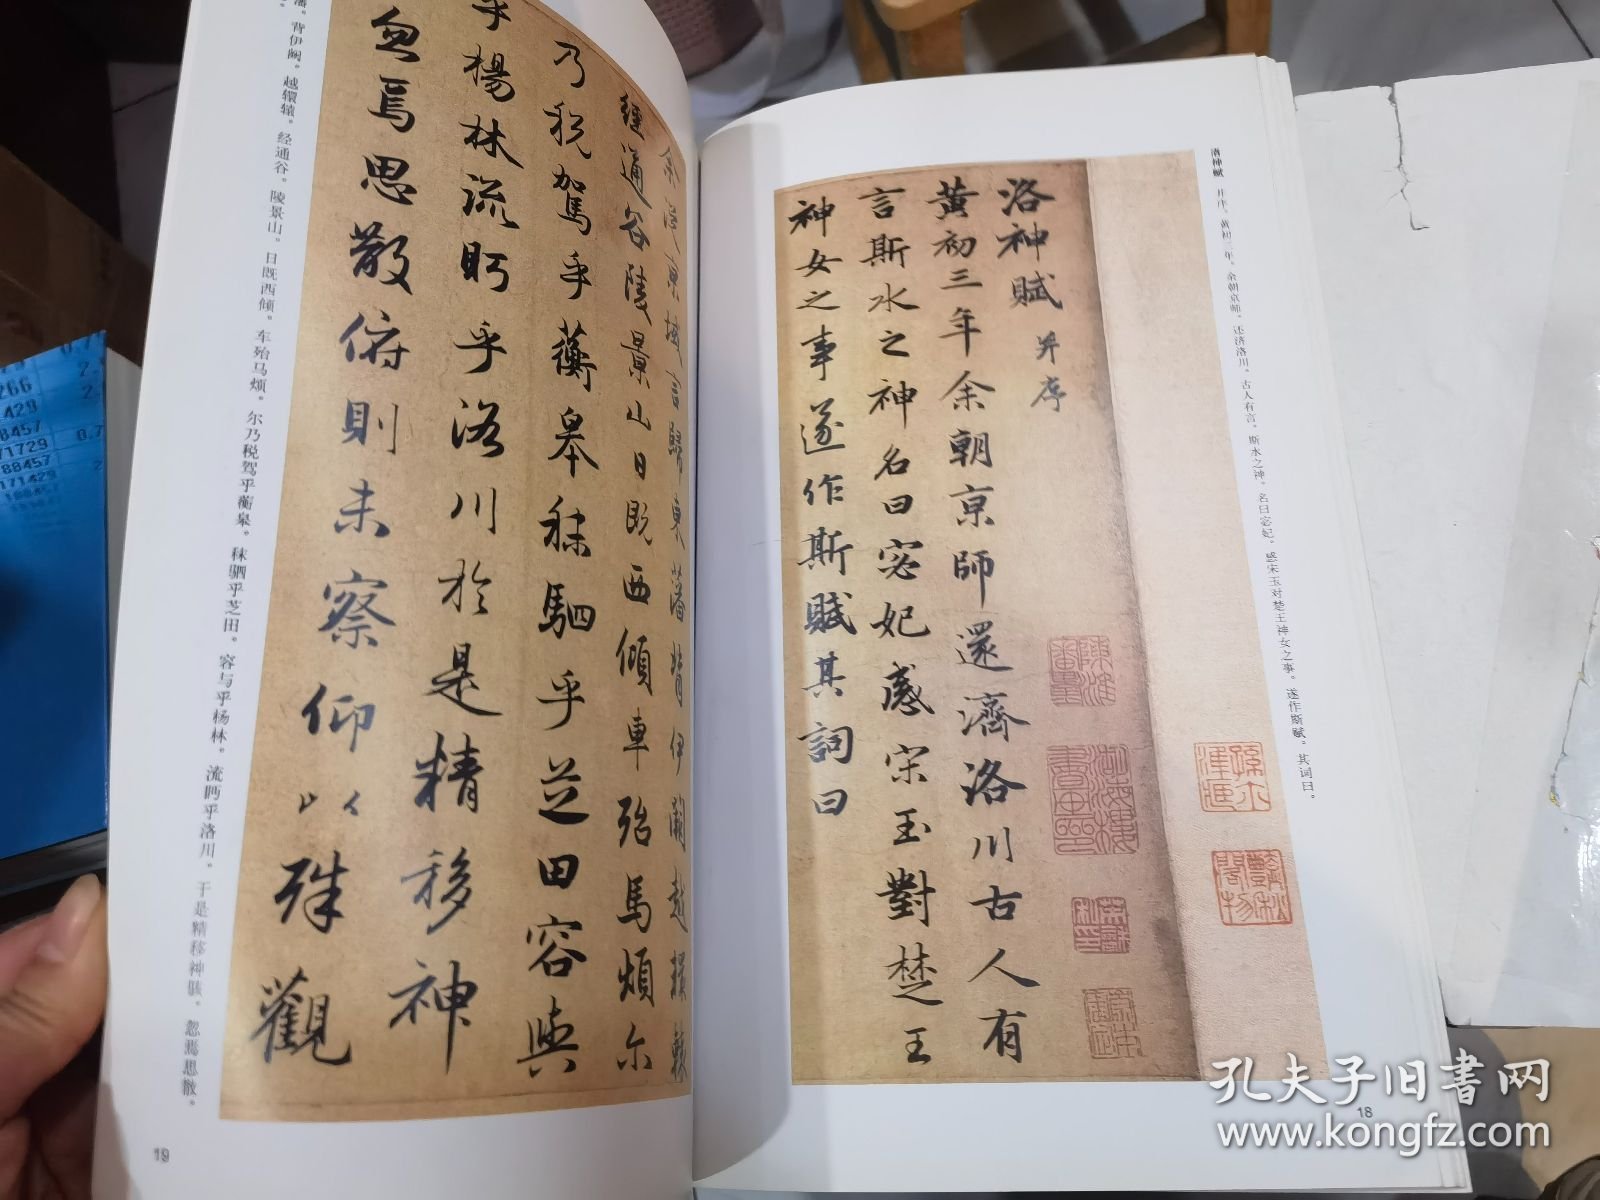 洛神赋 并序。黄初三年。余朝京师。还济洛川。古人有言。斯水之神。名曰宓妃。感宋玉对楚王神女之事。遂作斯赋。其词曰。
洛神賦并序
黄初三年余朝京師還濟洛川古人有
言斯水之神名曰宓妃感宋玉對楚王
神女之事遂作斯賦其詞曰
18
余從京域言歸東藩背伊闕越轘轅
經通谷陵景山日既西傾車殆馬煩尓
乃税駕乎蘅皋秣駟乎芝田容與
乎楊林流眄乎洛川於是精移神
忽焉思散俯則未察仰以殊觀
藩。背伊阙。越轘辕。经通谷。陵景山。日既西倾。车殆马烦。尔乃税驾乎蘅皋。秣驷乎芝田。容与乎杨林。流眄乎洛川。于是精移神骇。忽焉思散。
19
孔夫子旧书网
www.kongfz.com